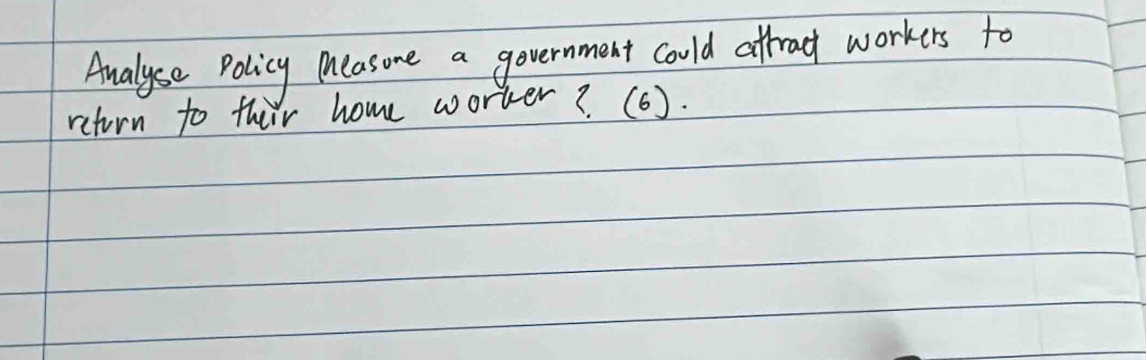 Analyse Policy measure a government could attract workers to
return to their home worker ? (6).